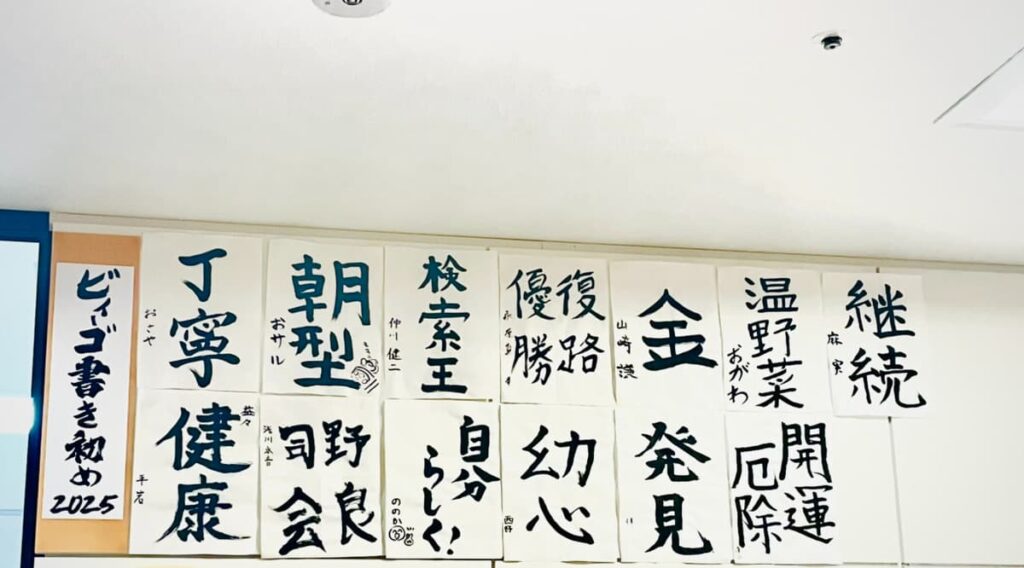 ビィーゴ書き初め
2025
丁寧
おさや
朝型
おサル
検索王
仲川健二
復路
優勝
金
山崎 護
温野菜
おがわ
継続
麻実
健康
益々
平岩
野良
司会
浅川
自分
らしく!
ののか
幼心
西野
発見
開運
厄除